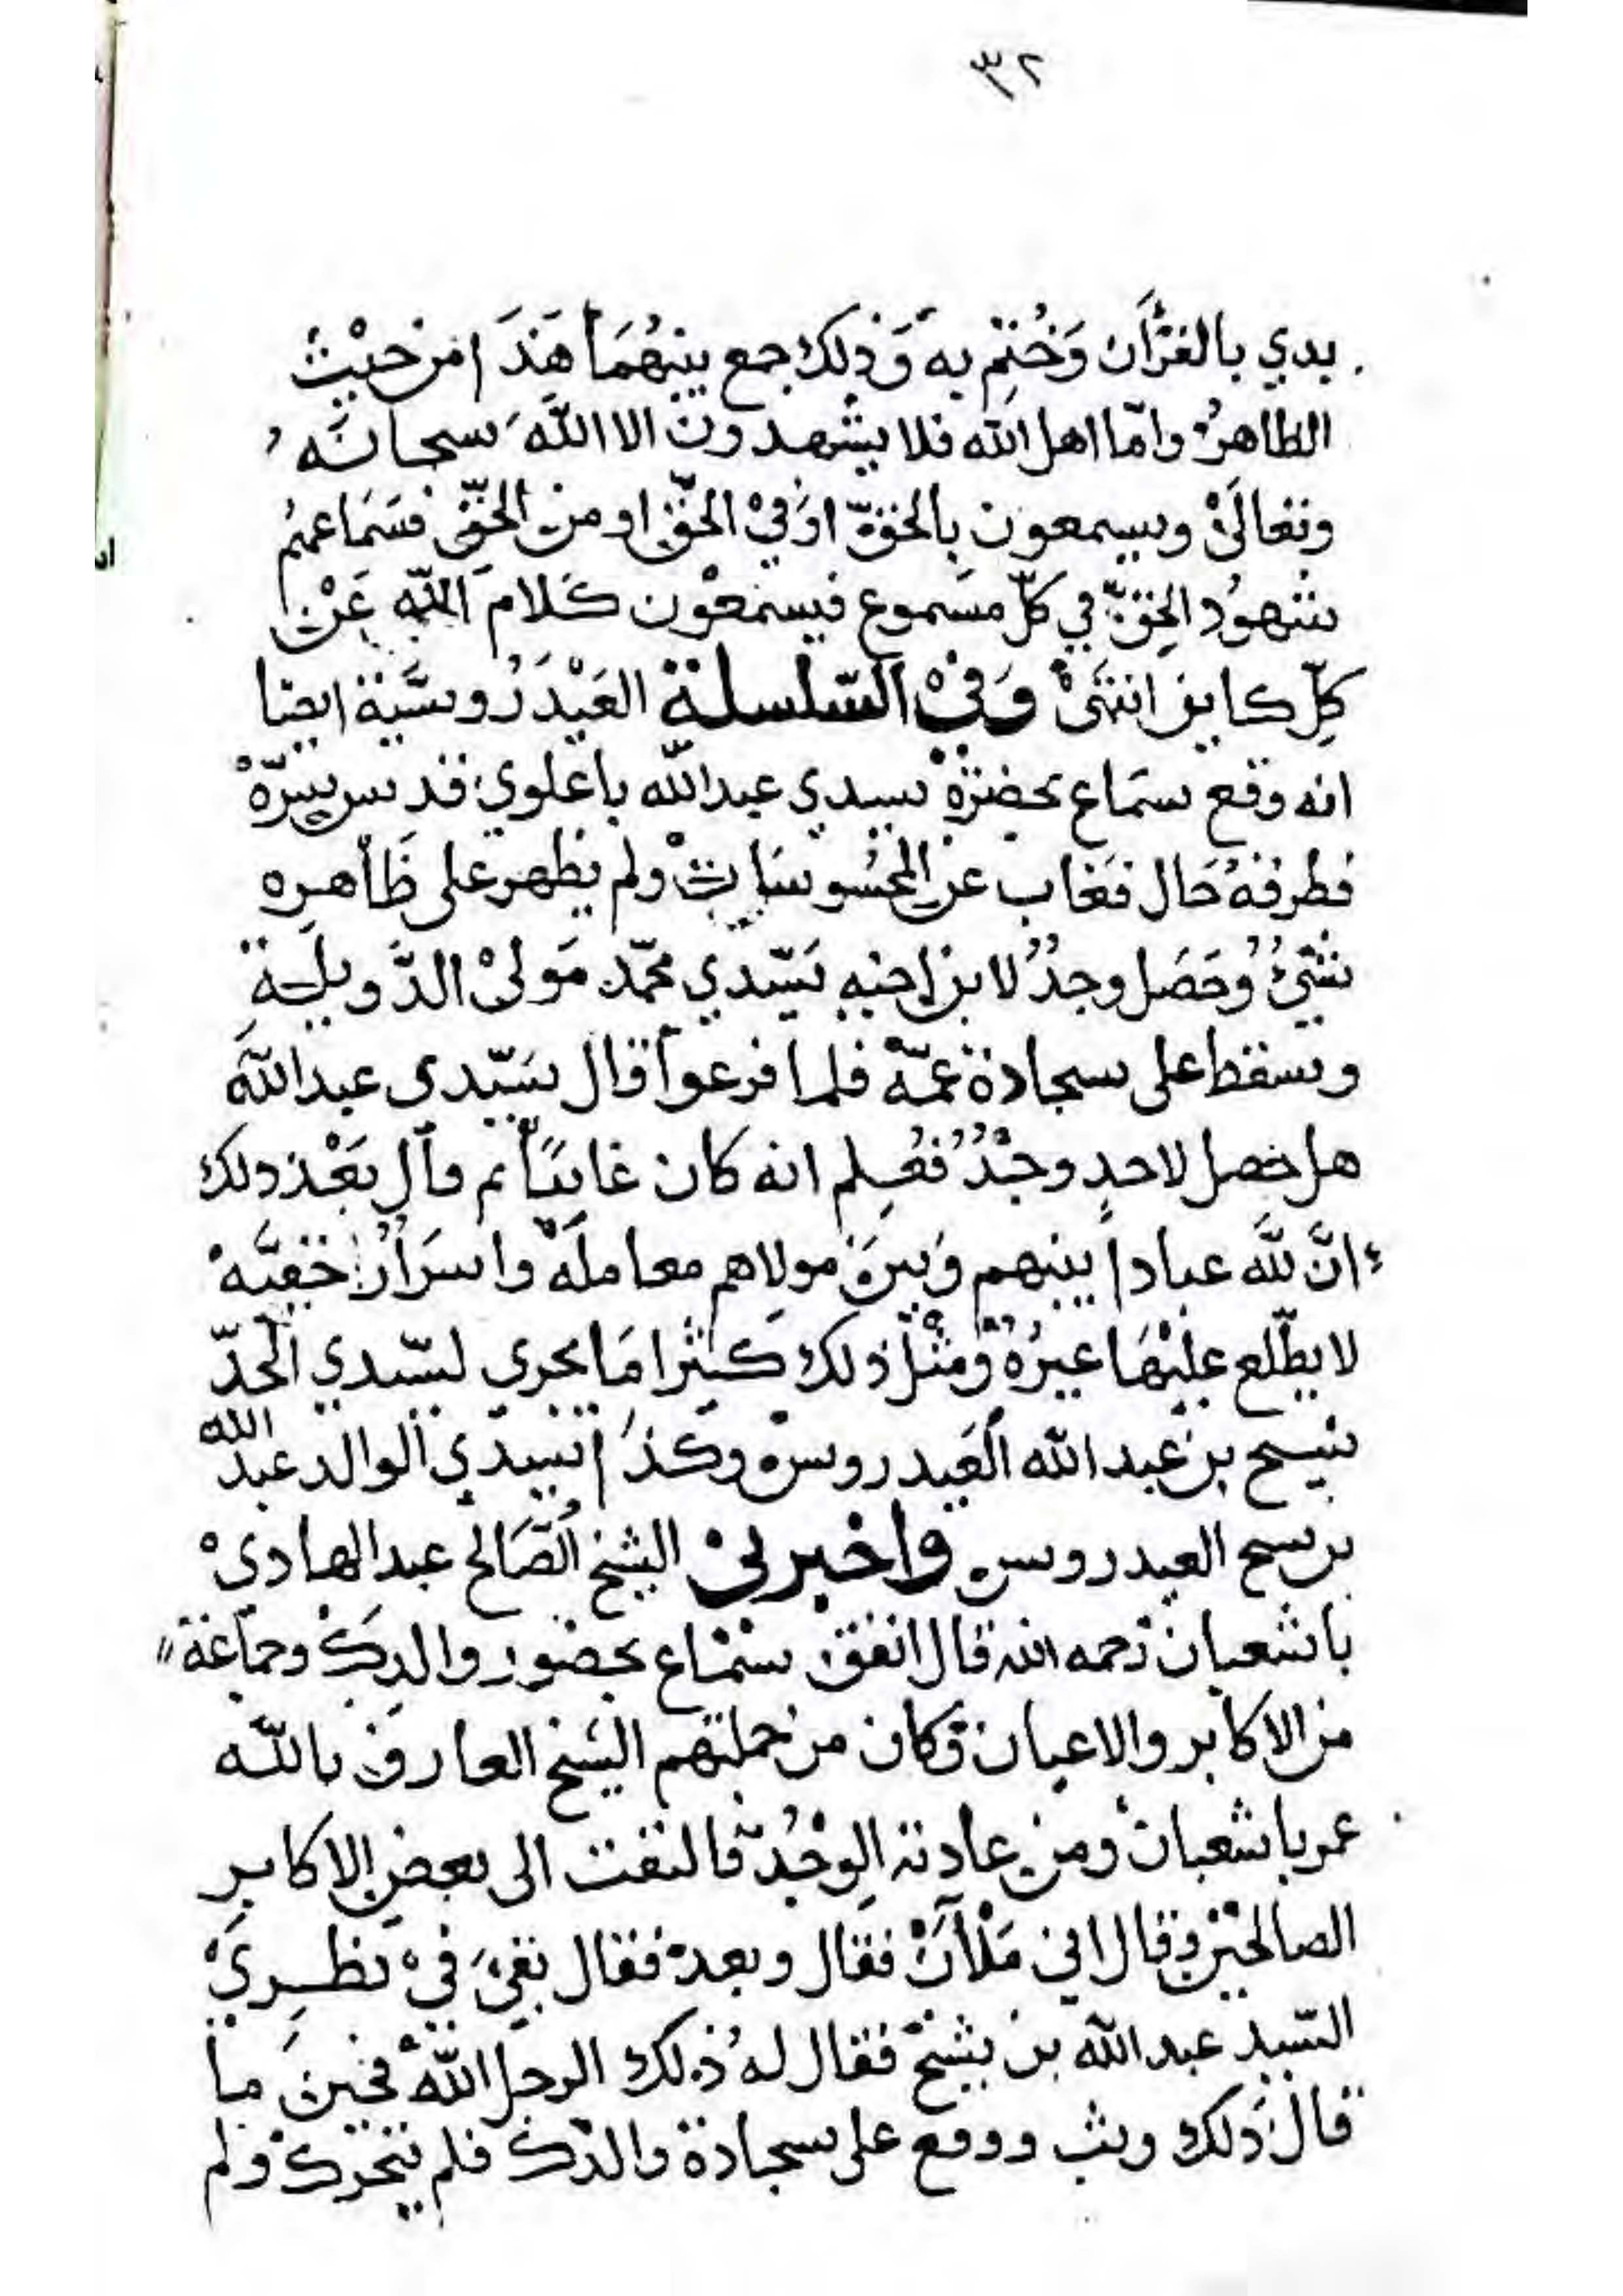 ٣٢
بدي بالقرآن وَخُتِم به وَذلك جمع بينهُمَا هَذَا من حيْثُ
الظاهر واما اهل الله فلا يشهدون الا اللهَ سبحانَه
وتعالىْ ويسمعون بالحق اوْ فيْ الحق او من الحق فسَماعهُم
شهوُد الحق في كلّ مسَموع فيسمعْون كَلام اللهِ عَنْ
كلِّ كاين انتهىْ وَفيْ السّلسلة العَيْدَرُوسيَّة ايضا
انه وقع سمَاع بحضرة سيدي عبد الله باعلوي قدس سِرّهْ
فطرقهُ حَال فغاب عن المحسُوسَات ولم يظهر على ظَاهرِه
شيْ وُحَصَل وجدُ لابن اخيه سَيّدي محمّد مَولىْ الدَّويلةِ
وسقط على سجادة عمّه فلما فرغوا قال سَيّدي عبد الله
هل حصل لاحدٍ وجْدُ فعُلم انه كان غايبًا ثم قال بعْد ذلك
انَّ للَّه عبادا بينهم وَبين مولاهم معاملَه واسرَارُ خفيَّهْ
لا يطّلع عليْهَا غيرُه ومثْل ذلك كثيرا مَا يجري لسيّدي الجدّ
شيخ بن عبد الله العَيدروسْ وكذَا سيدي الوالد عبد الله
بن شيخ العيدروس واخبرنيْ الشيخ الصَّالح عبد الهاديْ
باشعبان رحمه الله قال اتفق سَمَاع بحضور والدِكْ وجمَاعة
من الاكابر والاعيان وكان من جملتهم الشيخ العارف بالله
عمر باشعبان ومن عادته الوجْدُ فالتفت الى بعض الاكابر
الصالحيْن وقال اني مَلْآنْ فقال وبعد فقال بقيَ فيْ نظرِيْ
السيد عبد الله بن شيخْ فقال لهُ ذلك الرجل اللهْ فحين ما
قال ذَلك وثب ووقع على سجادة والدك فلم يتحرك ولم